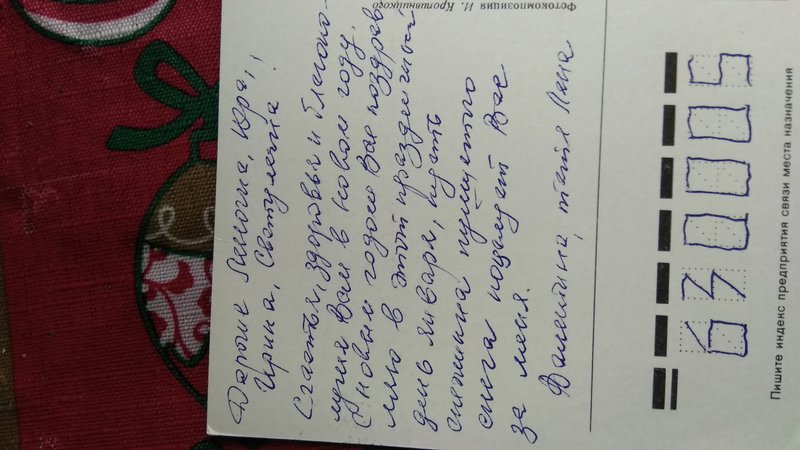 Фотокомпозиция И. Кропивницкого
Юра,
Ирина, Светулечка!
Счастья, здоровья и благопо-
лучия Вам в Новом году.
С новым годом Вас поздрав
ляю в этот праздничный
день января, пусть
снежинка пушистого
снега поцелует Вас
за меня.
Валентина, тётя
630005
Пишите индекс предприятия связи места назначения